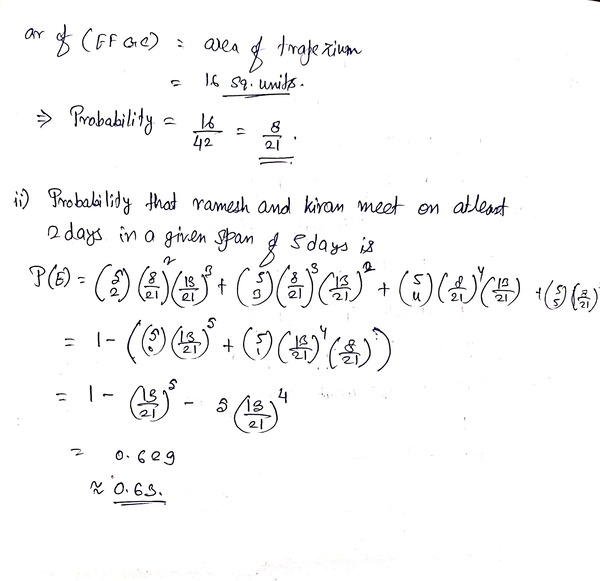 ar of (EFGC) = area of trapezium
= 16 sq. units.
⇒ Probability = 16/42 = 8/21.
ii) Probability that ramesh and kiran meet on atleast
2 days in a given span of 5 days is
P(E) = (5 2)(8/21)^2(13/21)^3 + (5 3)(8/21)^3(13/21)^2 + (5 4)(8/21)^4(13/21) + (5 5)(8/21)
= 1 - ((5 0)(13/21)^5 + (5 1)(13/21)^4(8/21)^1)
= 1 - (13/21)^5 - 5(13/21)^4
= 0.629
≈ 0.63.